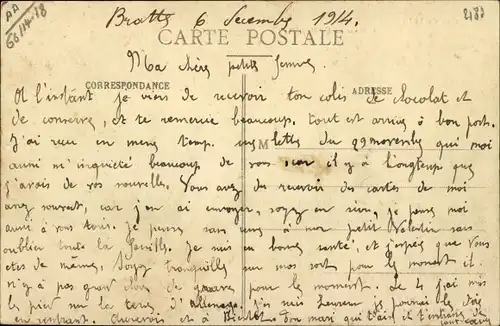 AA
66/14-18
6 Decembre 1914.
CARTE POSTALE
Ma chère petite femme
CORRESPONDANCE
ADRESSE
A l'instant je viens de recevoir ton colis de chocolat et
de conserve, et te remercie beaucoup. tout est arrivé à bon port.
J'ai reçu en meme temp. une lettre du 29 novembre qui moi
aussi m'inquieté beaucoup de vous, car il y à longtemp que
j'avais de vos nouvelles. Vous avez du recevoir des cartes de moi
avez souvent, car j'en ai envoyer, soyez en sur, je pense moi
aussi à vous tous. Je pense sans cesse à mon petit Valentin sans
oublier toute la famille. Je suis en bonne santé, et j'espère que vous
etes de même, Soyez tranquille sur mon sort pour le moment il
n'y à pas grand chose de grave pour le moment. Je j'ai mis
le pied sur la terre d'Allemagne. J'en suis heureux je pourrai le dire
en rentrant. Aurevoir et à Bientot. Ton mari qui t'aime il t'embrasse de
tout coeur